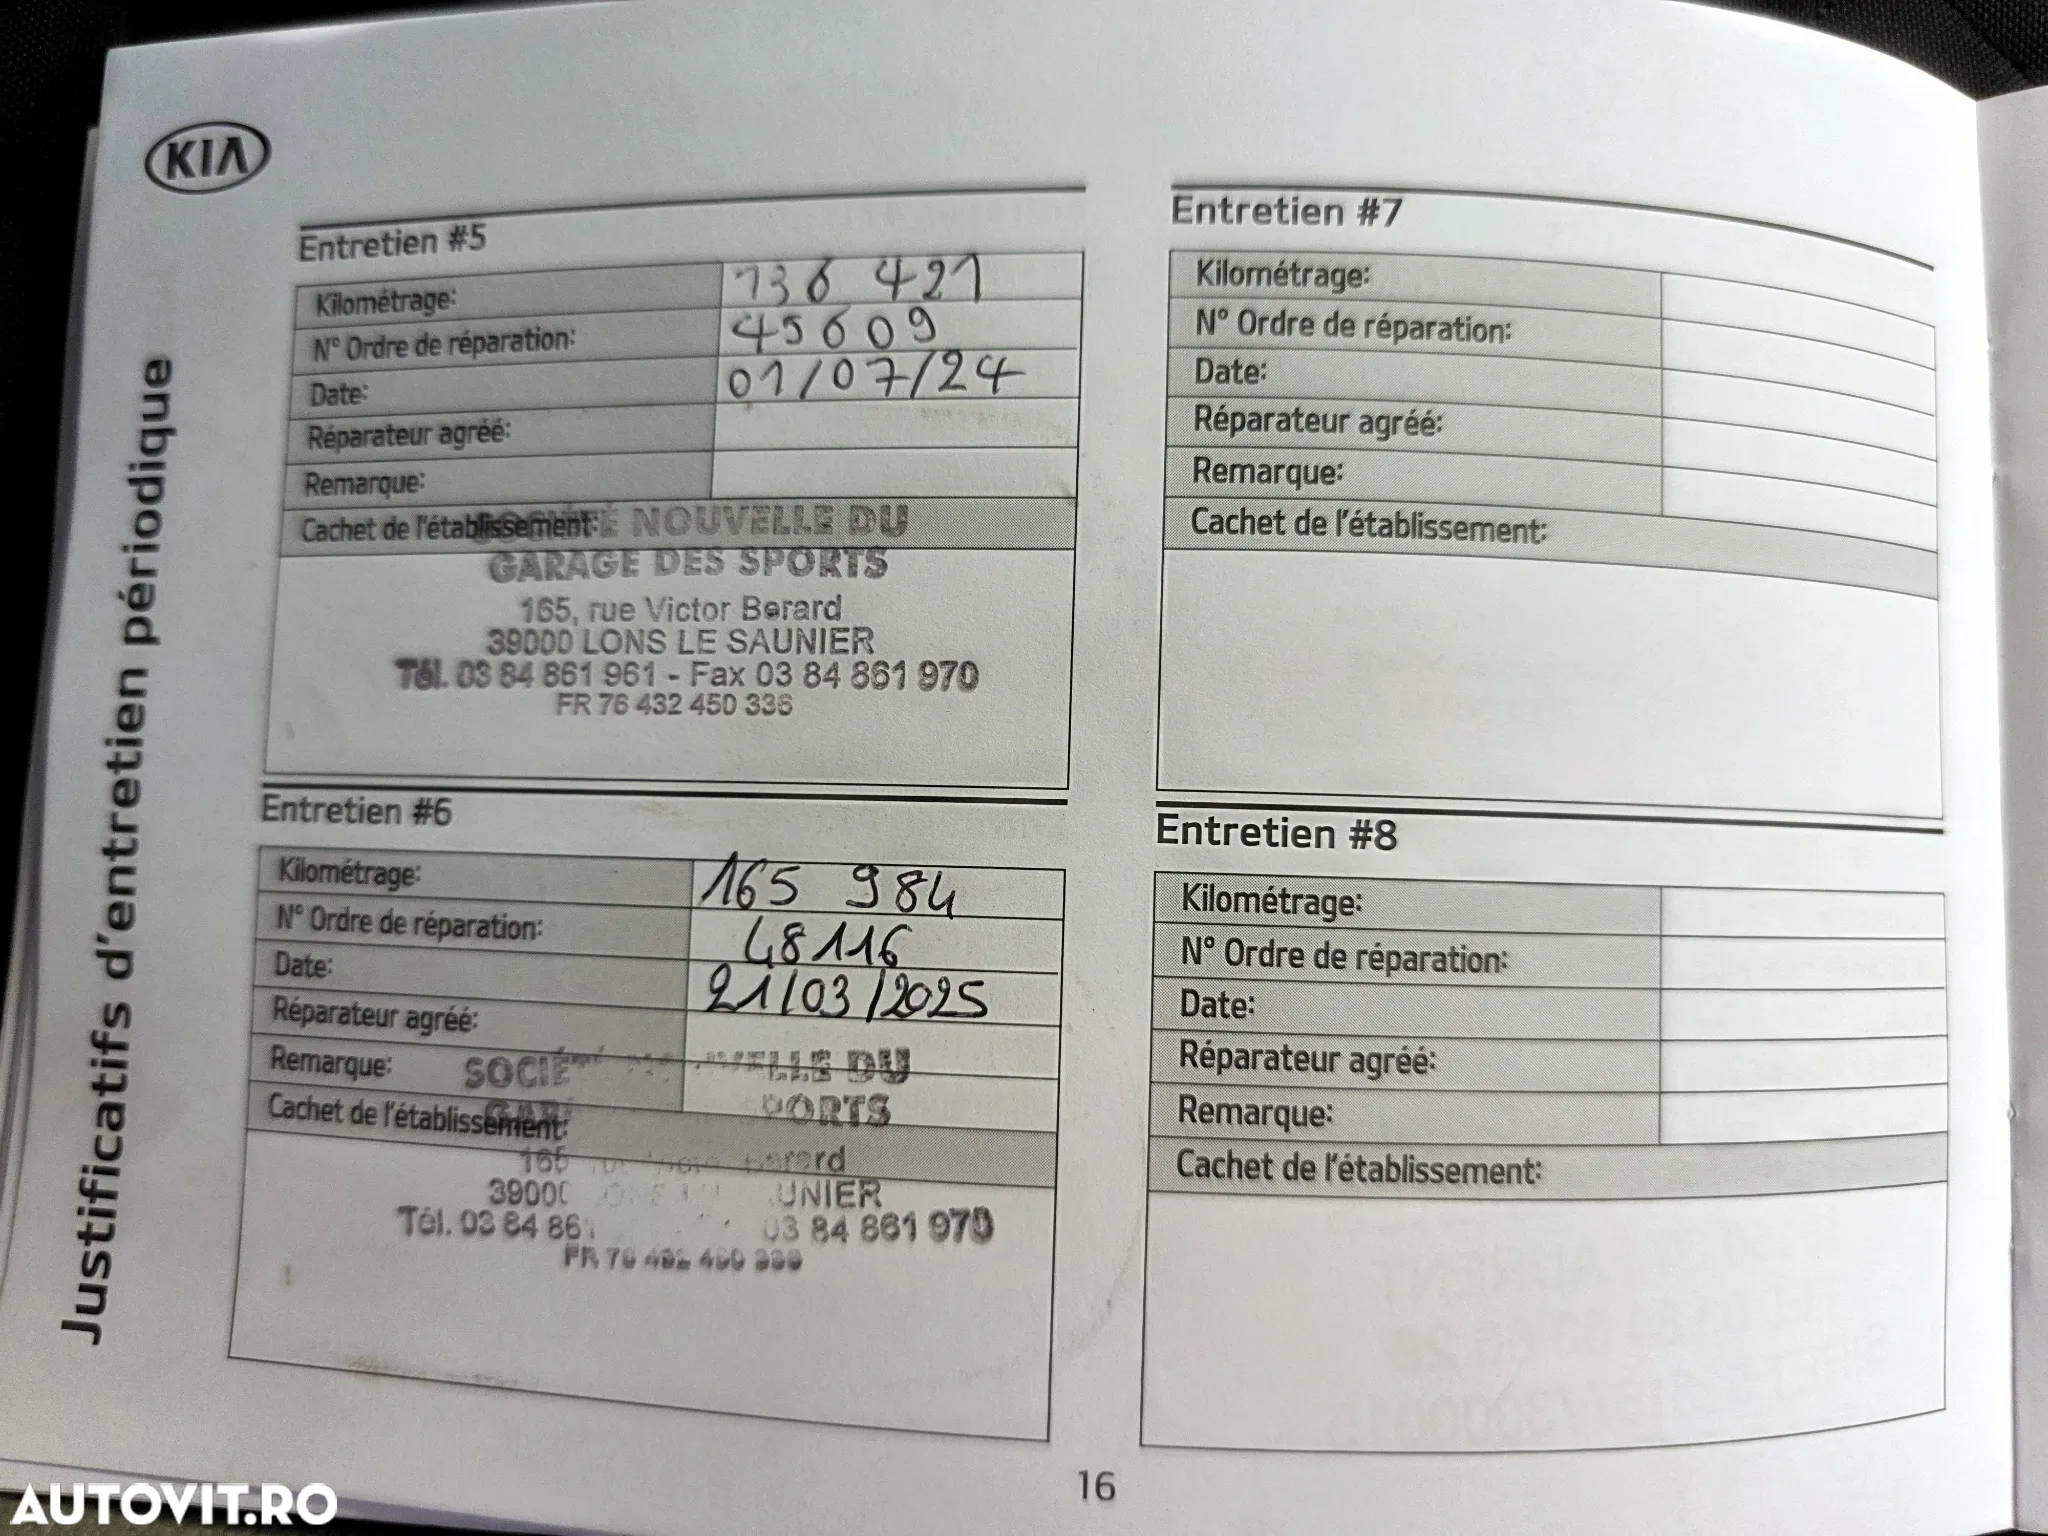 KIA
Justificatifs d'entretien périodique
Entretien #5
Kilométrage: 136 421
N° Ordre de réparation: 45609
Date: 01/07/24
Réparateur agréé:
Remarque:
Cachet de l'établissement:
SOCIÉTÉ NOUVELLE DU
GARAGE DES SPORTS
165, rue Victor Berard
39000 LONS LE SAUNIER
Tél. 03 84 861 961 - Fax 03 84 861 970
FR 76 432 450 336
Entretien #6
Kilométrage: 165 984
N° Ordre de réparation: 48116
Date: 21/03/2025
Réparateur agréé:
Remarque:
Cachet de l'établissement:
DU
39000
Tél. 03 84 03 84 861 970
Entretien #7
Kilométrage:
N° Ordre de réparation:
Date:
Réparateur agréé:
Remarque:
Cachet de l'établissement:
Entretien #8
Kilométrage:
N° Ordre de réparation:
Date:
Réparateur agréé:
Remarque:
Cachet de l'établissement:
16
AUTOVIT.RO